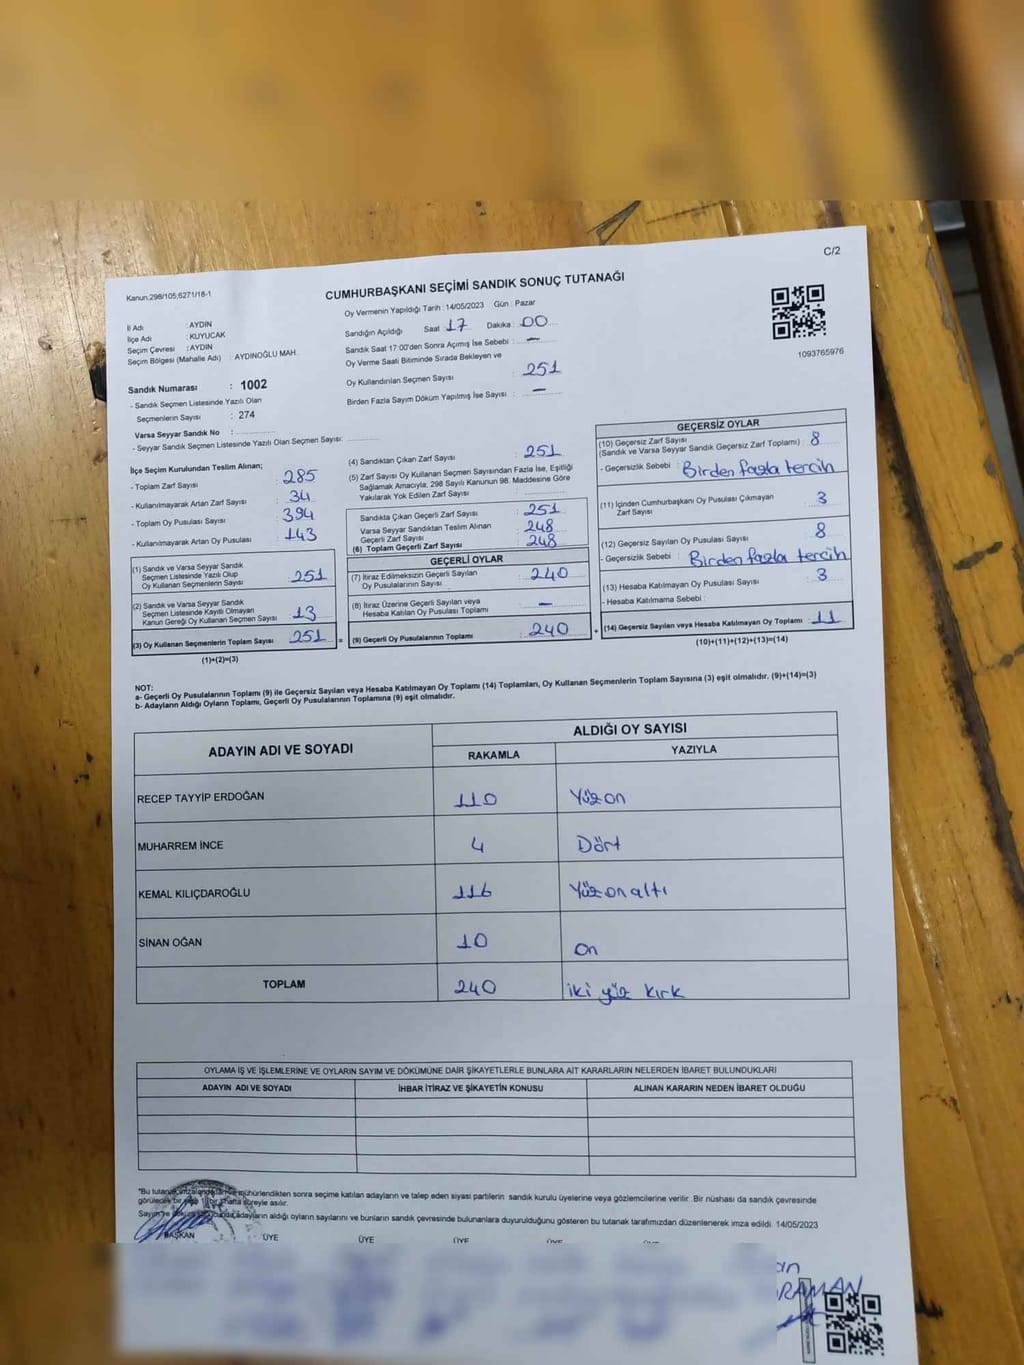 C/2
Kanun;298/105;6271/18-1
CUMHURBAŞKANI SEÇİMİ SANDIK SONUÇ TUTANAĞI
Oy Vermenin Yapıldığı Tarih : 14/05/2023 Gün : Pazar
İl Adı : AYDIN
İlçe Adı : KUYUCAK
Seçim Çevresi : AYDIN
Seçim Bölgesi (Mahalle Adı) : AYDINOĞLU MAH.
Sandığın Açıldığı Saat 17 Dakika : 00
Sandık Saat 17:00'den Sonra Açımış İse Sebebi : —
Oy Verme Saati Bitiminde Sırada Bekleyen ve
Oy Kullandırılan Seçmen Sayısı : 251
Birden Fazla Sayım Döküm Yapılmış İse Sayısı : —
1093765976
Sandık Numarası : 1002
- Sandık Seçmen Listesinde Yazılı Olan
Seçmenlerin Sayısı : 274
Varsa Seyyar Sandık No :
- Seyyar Sandık Seçmen Listesinde Yazılı Olan Seçmen Sayısı:
İlçe Seçim Kurulundan Teslim Alınan;
- Toplam Zarf Sayısı : 285
- Kullanılmayarak Artan Zarf Sayısı : 34
- Toplam Oy Pusulası Sayısı : 394
- Kullanılmayarak Artan Oy Pusulası : 143
(1) Sandık ve Varsa Seyyar Sandık
Seçmen Listesinde Yazılı Olup
Oy Kullanan Seçmenlerin Sayısı : 251
(2) Sandık ve Varsa Seyyar Sandık
Seçmen Listesinde Kayıtlı Olmayan
Kanun Gereği Oy Kullanan Seçmen Sayısı : 13
(3) Oy Kullanan Seçmenlerin Toplam Sayısı : 251 =
(1)+(2)=(3)
(4) Sandıktan Çıkan Zarf Sayısı : 251
(5) Zarf Sayısı Oy Kullanan Seçmen Sayısından Fazla İse, Eşitliği
Sağlamak Amacıyla; 298 Sayılı Kanunun 98. Maddesine Göre
Yakılarak Yok Edilen Zarf Sayısı :
Sandıkta Çıkan Geçerli Zarf Sayısı : 251
Varsa Seyyar Sandıktan Teslim Alınan
Geçerli Zarf Sayısı : 248
(6) Toplam Geçerli Zarf Sayısı : 248
GEÇERLİ OYLAR
(7) İtiraz Edilmeksizin Geçerli Sayılan
Oy Pusulalarının Sayısı : 240
(8) İtiraz Üzerine Geçerli Sayılan veya
Hesaba Katılan Oy Pusulası Toplamı : —
(9) Geçerli Oy Pusulalarının Toplamı : 240 +
GEÇERSİZ OYLAR
(10) Geçersiz Zarf Sayısı
(Sandık ve Varsa Seyyar Sandık Geçersiz Zarf Toplamı) : 8
- Geçersizlik Sebebi : Birden fazla tercih
(11) İçinden Cumhurbaşkanı Oy Pusulası Çıkmayan
Zarf Sayısı : 3
(12) Geçersiz Sayılan Oy Pusulası Sayısı : 8
- Geçersizlik Sebebi : Birden fazla tercih
(13) Hesaba Katılmayan Oy Pusulası Sayısı : 3
- Hesaba Katılmama Sebebi :
(14) Geçersiz Sayılan veya Hesaba Katılmayan Oy Toplamı : 11
(10)+(11)+(12)+(13)=(14)
NOT:
a- Geçerli Oy Pusulalarının Toplamı (9) ile Geçersiz Sayılan veya Hesaba Katılmayan Oy Toplamı (14) Toplamları, Oy Kullanan Seçmenlerin Toplam Sayısına (3) eşit olmalıdır. (9)+(14)=(3)
b- Adayların Aldığı Oyların Toplamı, Geçerli Oy Pusulalarının Toplamına (9) eşit olmalıdır.
ADAYIN ADI VE SOYADI
ALDIĞI OY SAYISI
RAKAMLA YAZIYLA
RECEP TAYYİP ERDOĞAN 110 Yüzon
MUHARREM İNCE 4 Dört
KEMAL KILIÇDAROĞLU 116 Yüzonaltı
SİNAN OĞAN 10 on
TOPLAM 240 iki yüz kırk
OYLAMA İŞ VE İŞLEMLERİNE VE OYLARIN SAYIM VE DÖKÜMÜNE DAİR ŞİKAYETLERLE BUNLARA AİT KARARLARIN NELERDEN İBARET BULUNDUKLARI
ADAYIN ADI VE SOYADI İHBAR İTİRAZ VE ŞİKAYETİN KONUSU ALINAN KARARIN NEDEN İBARET OLDUĞU
"Bu mühürlendikten sonra seçime katılan adayların ve talep eden siyasi partilerin sandık kurulu üyelerine veya gözlemcilerine verilir. Bir nüshası da sandık çevresinde
görülecek bir süreyle asılır.
adayların aldığı oyların sayılarını ve bunların sandık çevresinde bulunanlara duyurulduğunu gösteren bu tutanak tarafımızdan düzenlenerek imza edildi. 14/05/2023
BAŞKAN ÜYE ÜYE ÜYE